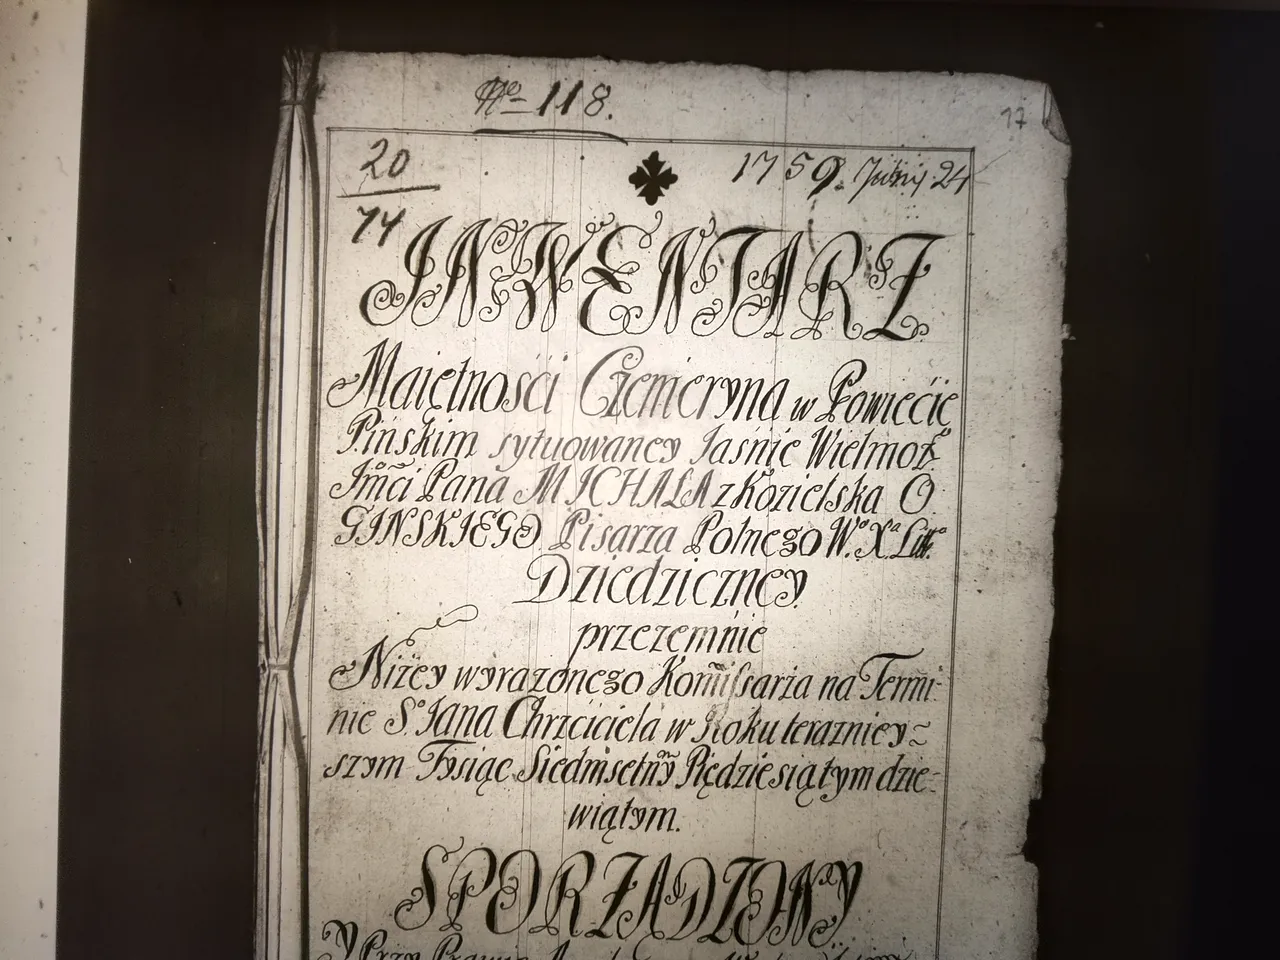 No 118.
17
20
1759. Juny 24
74
INWENTARZ
Maiętności Czemeryna w Powiecie
Pińskim sytuowaney Jaśnie Wielmoż°
Jmći Pana MICHAŁA z Kozielska O
GIŃSKIEGO Pisarza Polnego W.° X.ª Litt°
Dziedziczney
przezemnie
Niżey wyrażonego Kommissarza na Termi-
nie S.° Jana Chrzciciela w Roku terazniey~
szym Tysiąc Siedmsetny Pięćdziesiątym dzie-
wiątym.
SPORZĄDZONY
Y Przy